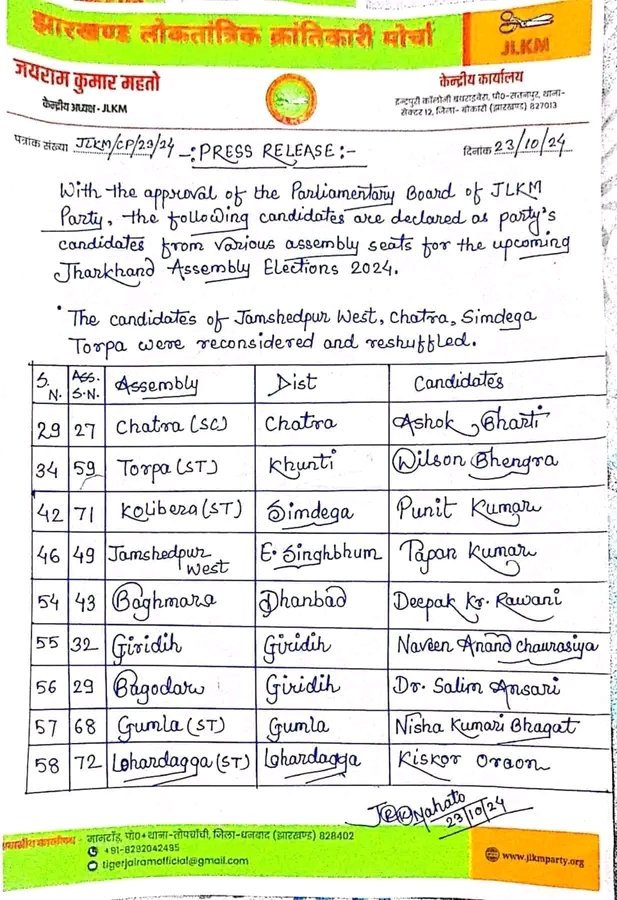 झारखण्ड लोकतांत्रिक क्रांतिकारी मोर्चा
JLKM
जयराम कुमार महतो
केन्द्रीय अध्यक्ष - JLKM
केन्द्रीय कार्यालय
इन्द्रपुरी कॉलोनी चीराचास, पो०-सतनपुर, थाना-
सेक्टर 12, जिला- बोकारो (झारखण्ड) 827013
पत्रांक संख्या JLKM/CP/23/24 -: PRESS RELEASE:- दिनांक 23/10/24
With the approval of the Parliamentary Board of JLKM
Party, the following candidates are declared as party's
candidates from various assembly seats for the upcoming
Jharkhand Assembly Elections 2024.
• The candidates of Jamshedpur West, Chatra, Simdega
Torpa were reconsidered and reshuffled.
S.N. Ass. S.N. Assembly Dist Candidates
29 27 Chatra (SC) Chatra Ashok Bharti
34 59 Torpa (ST) Khunti Wilson Bhengra
42 71 Kolibera (ST) Simdega Punit Kumar
46 49 Jamshedpur West E. Singhbhum Tapan Kumar
54 43 Baghmara Dhanbad Deepak Kr. Rawani
55 32 Giridih Giridih Naveen Anand Chaurasiya
56 29 Bagodar Giridih Dr. Salim Ansari
57 68 Gumla (ST) Gumla Nisha Kumari Bhagat
58 72 Lohardagga (ST) Lohardagga Kiskor Oraon
Mahato
23/10/24
कार्यालय - मानटाँड़, पो०+थाना-तोपचाँची, जिला-धनबाद (झारखण्ड) 828402
+91-8292042495
tigerjairamofficial@gmail.com
www.jlkmparty.org